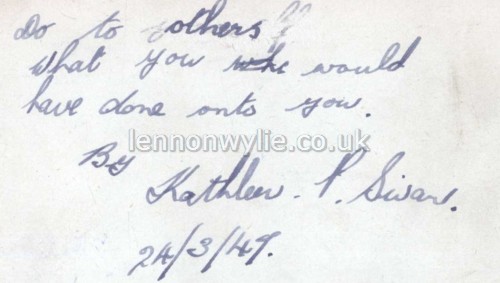 Do to others
What you would
have done onto you.
lennonwylie.co.uk
By
Kathleen. P. Swan.
24/3/49.